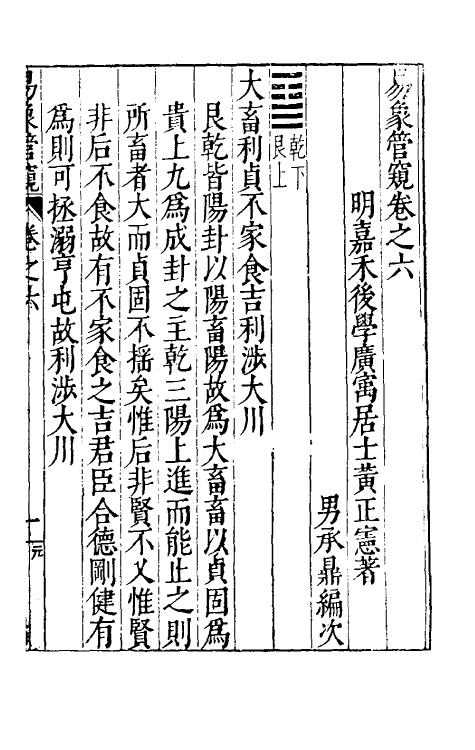 易象管窺卷之六
明嘉禾後學廣寓居士黃正憲著
男承鼎編次
乾下
艮上
大畜利貞不家食吉利涉大川
艮乾皆陽卦以陽畜陽故爲大畜畜以貞固爲
貴上九爲成卦之主乾三陽上進而能止之則
所畜者大而貞固不搖矣惟后非賢不乂惟賢
非后不食故有不家食之吉君臣合德剛健有
爲則可拯溺亨屯故利涉大川
易象管窺
卷之六
一
元